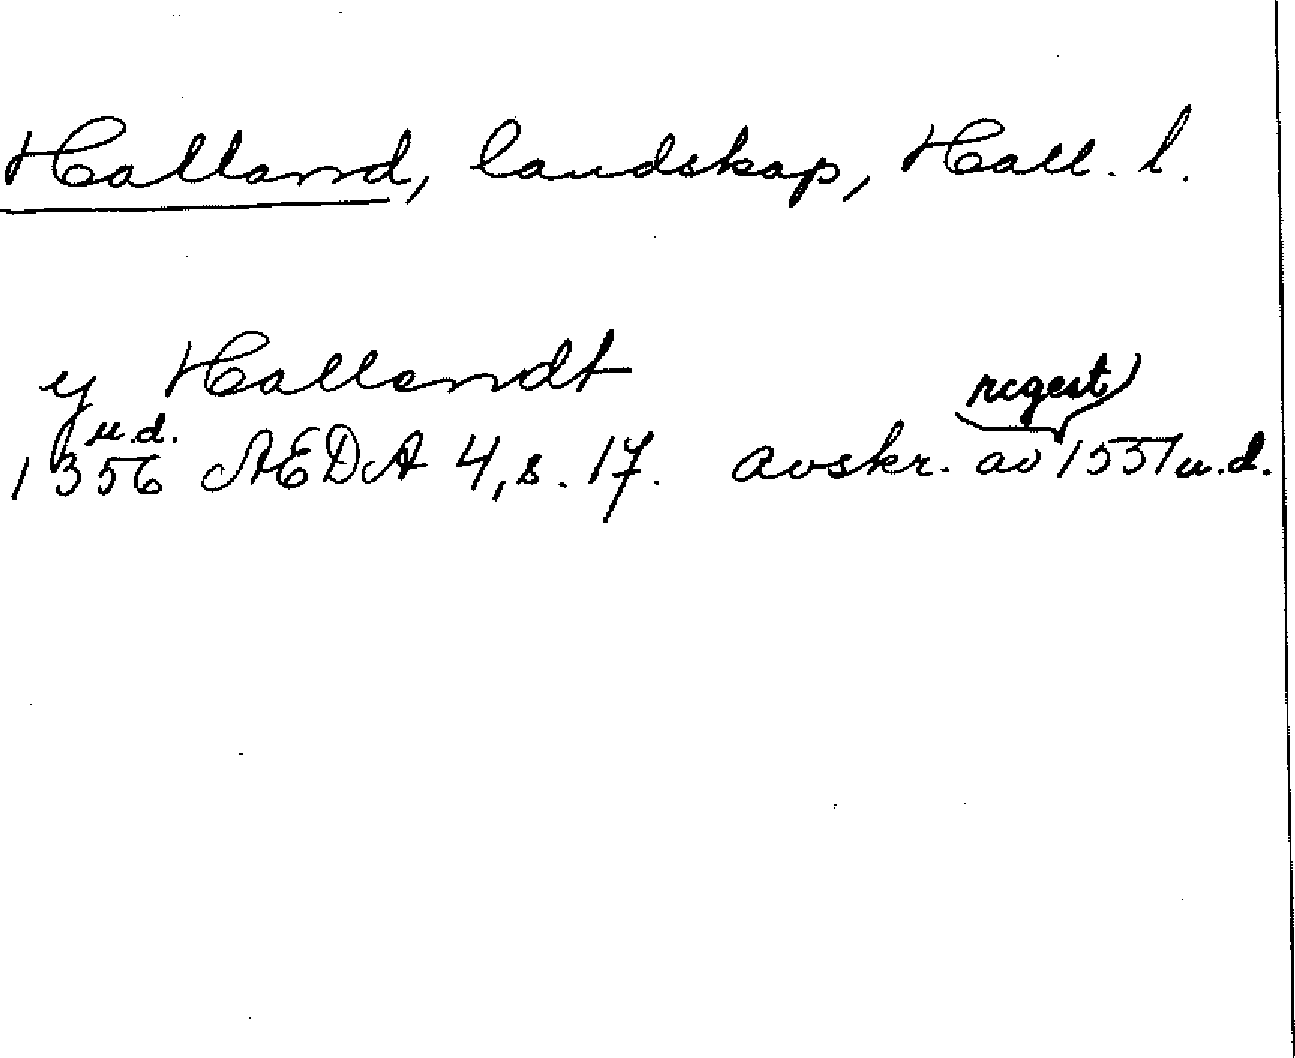 Halland, landskap, Hall. l.
y Hallandt
1356 u.d. AEDA 4, s. 17. avskr. av regest 1551 u.d.